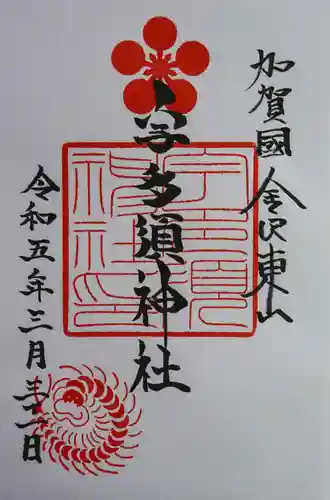 加賀國金沢東山
宇多須神社
令和五年三月三十一日